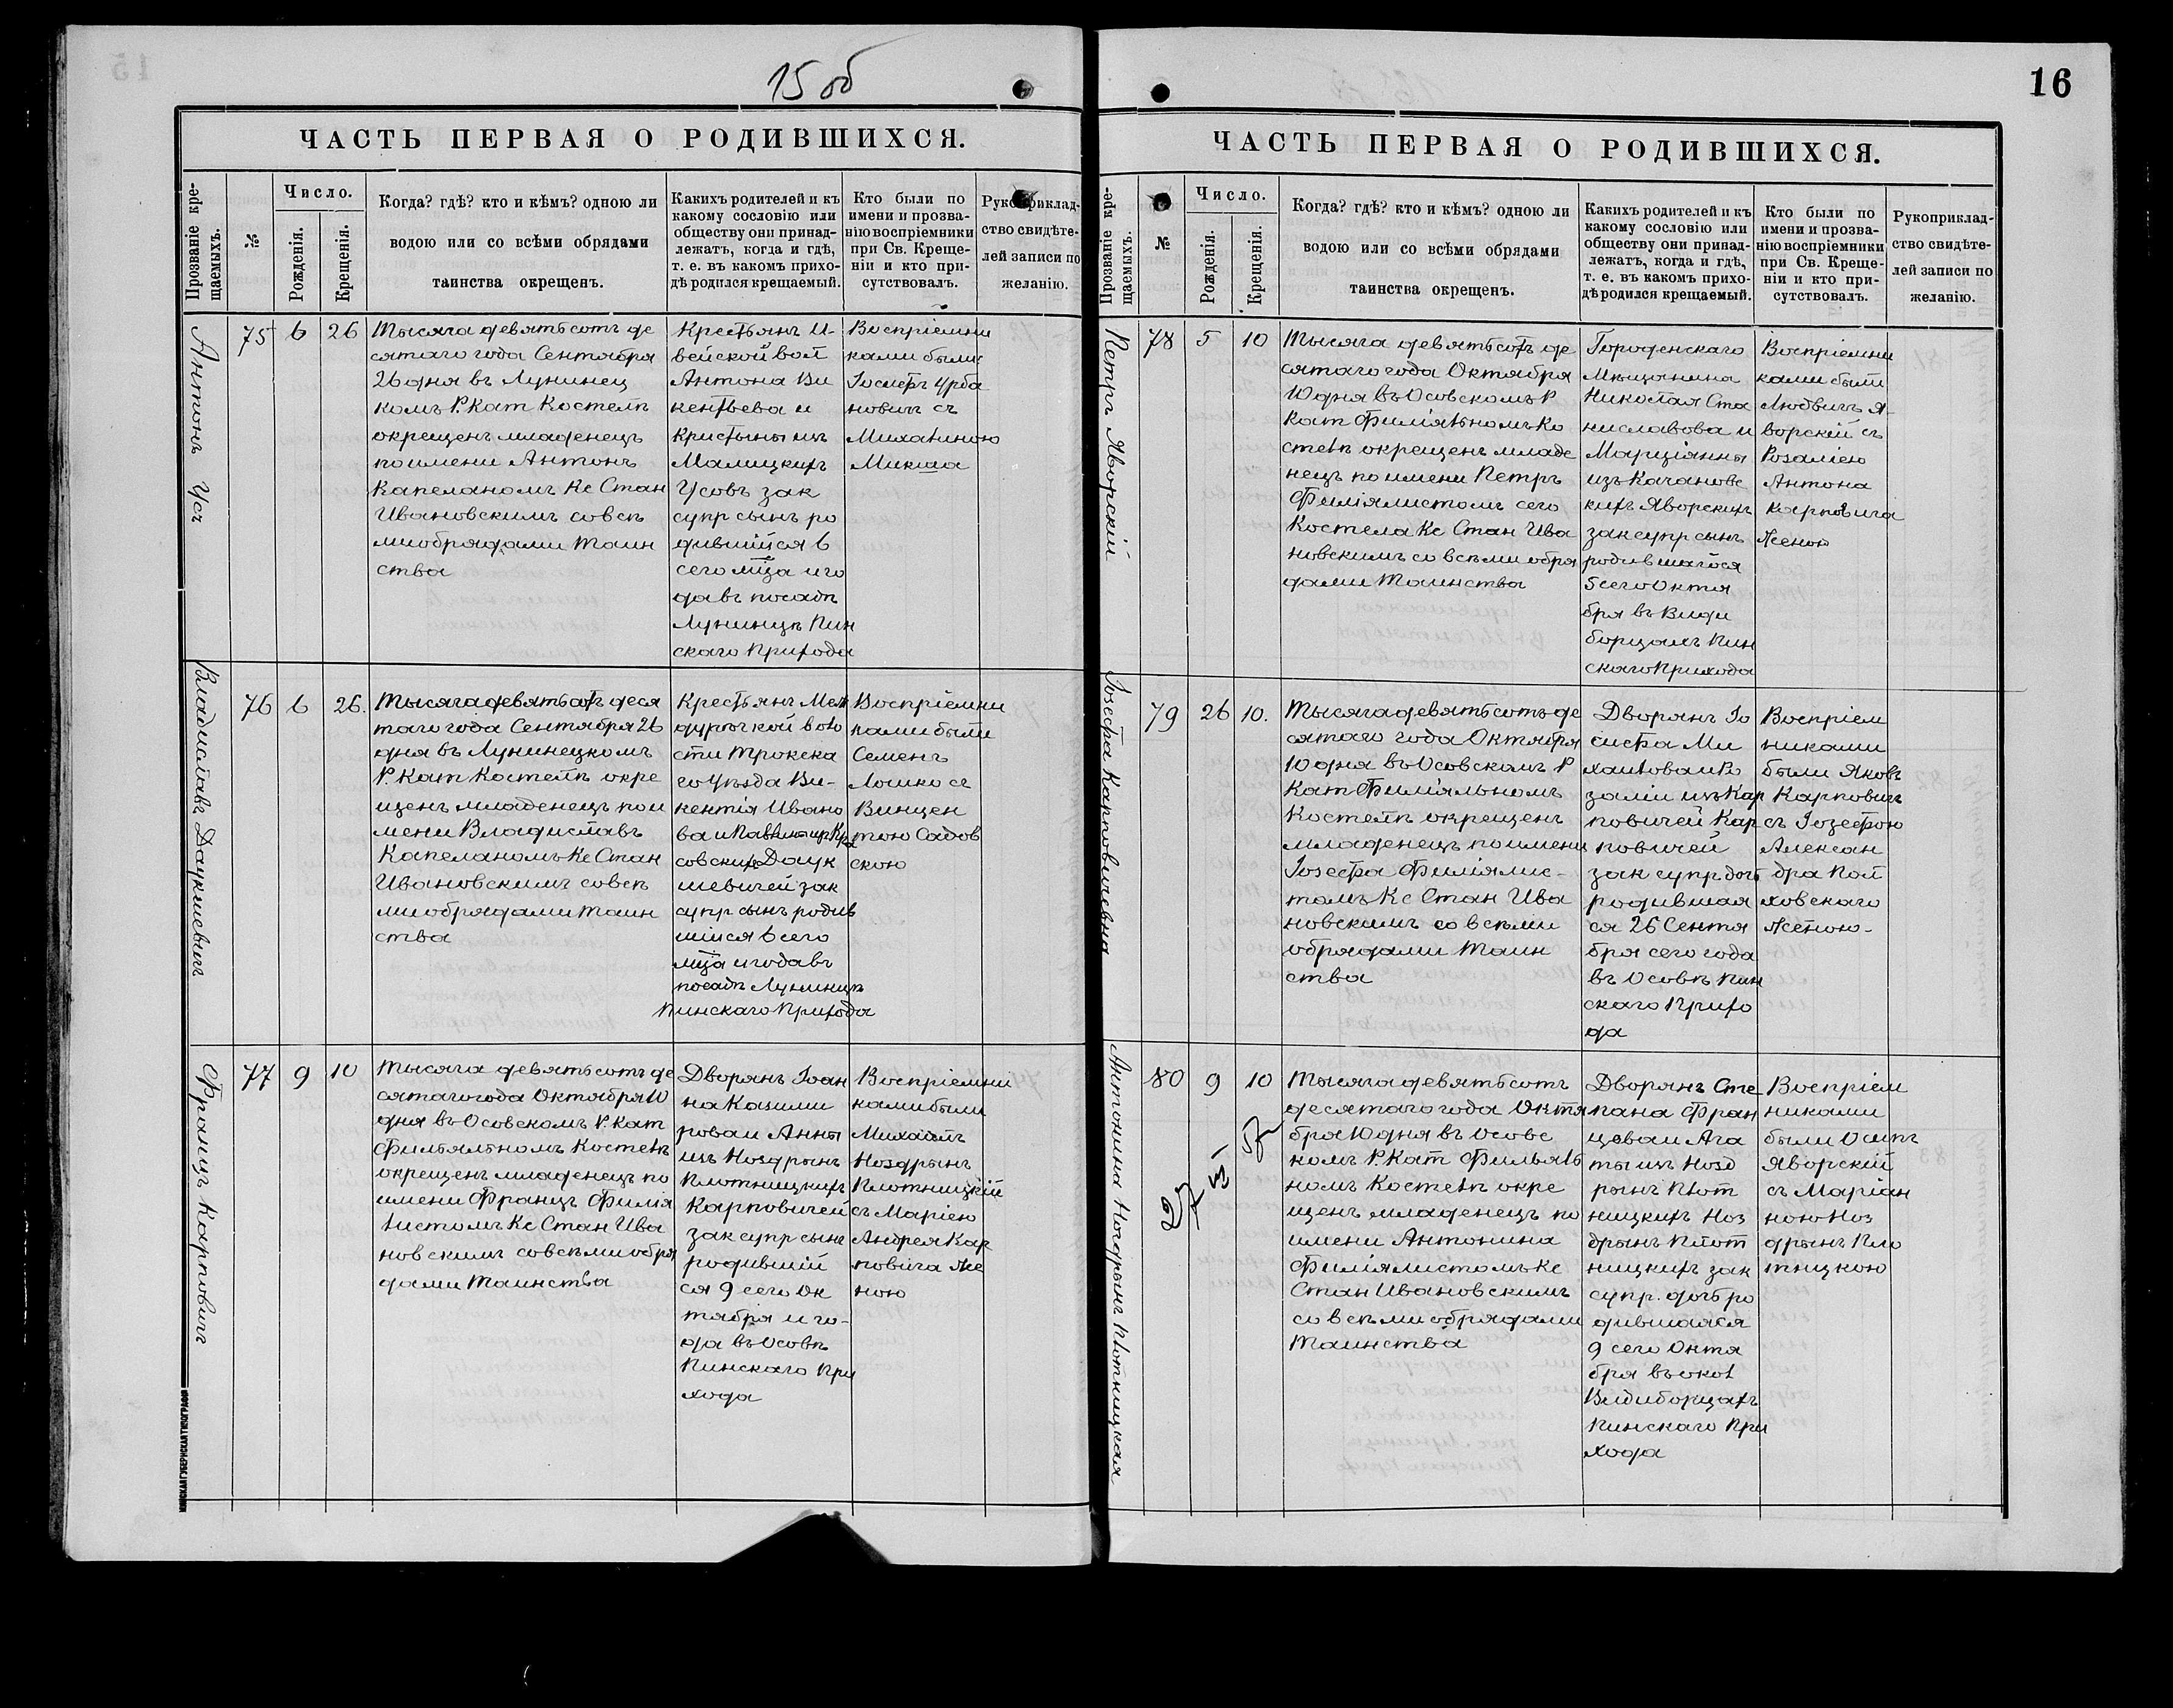 15 об
ЧАСТЬ ПЕРВАЯ О РОДИВШИХСЯ.
Прозваніе кре-
щаемыхъ.
№
Число.
Рожденія.
Крещенія.
Когда? гдѣ? кто и кѣмъ? одною ли
водою или со всѣми обрядами
таинства окрещенъ.
Какихъ родителей и къ
какому сословію или
обществу они принад-
лежатъ, когда и гдѣ,
т. е. въ какомъ прихо-
дѣ родился крещаемый.
Кто были по
имени и прозва-
нію воспріемники
при Св. Креще-
ніи и кто при-
сутствовалъ.
Рукоприклад-
ство свидѣте-
лей записи по
желанію.
Антонъ Усъ
75
6
26
Тысяча девятьсотъ де
сятаго года Сентября
26 дня въ Лунинец
комъ Р. Кат Костелѣ
окрещенъ младенецъ
по имени Антонъ
Капеланомъ Кс Стан
Ивановскимъ со всѣ
ми обрядами Таин
ства
Крестьянъ И-
вейской вол
Антона Ви
кентьева и
Кристыны изъ
Малицкихъ
Усовъ зак
супр сынъ ро
дившійся 6
сего мца и го
да въ посадѣ
Лунинцѣ Пин
скаго Прихода
Воспріемни
ками были
Іосифъ Урба
новичъ съ
Михалиною
Микша
Владиславъ Даукшевичъ
76
6
26.
Тысяча девятьсотъ деся
таго года Сентября 26
дня въ Лунинецкомъ
Р. Кат Костелѣ окре
щенъ младенецъ по и
мени Владиславъ
Капеланомъ Кс Стан
Ивановскимъ со всѣ
ми обрядами Таин
ства
Крестьянъ Меж
дурѣчкой воло
сти Трокска
го Уѣзда Ви-
кентія Ивано
ва и Павлины изъ Кра
совскихъ Даук
шевичей зак
супр сынъ родив
шійся 6 сего
мца и года въ
посадѣ Лунинцѣ
Пинскаго Прихода
Воспріемни
ками были
Семенъ
Лошко съ
Винцен
тою Садов
скою
Францъ Карповичъ
77
9
10
Тысяча девятьсотъ де
сятаго года Октября 10
дня въ Осовскомъ Р. Кат
Фильяльномъ Костелѣ
окрещенъ младенецъ по
имени Францъ Филія
листомъ Кс Стан Ива
новскимъ со всѣми обря
дами Таинства
Дворянъ Іоан
на Казими
рова и Анны
изъ Ноздрынъ
Плотницкихъ
Карповичей
зак супр сынъ
родившій
ся 9 сего Ок
тября и го-
да въ Осовѣ
Пинскаго При
хода
Воспріемни
ками были
Михаилъ
Ноздрынъ
Плотницкій
съ Маріею
Андрея Кар
повича же
ною
МИНСКАЯ ГУБЕРНСКАЯ ТИПОГРАФІЯ
16
ЧАСТЬ ПЕРВАЯ О РОДИВШИХСЯ.
Прозваніе кре-
щаемыхъ.
№
Число.
Рожденія.
Крещенія.
Когда? гдѣ? кто и кѣмъ? одною ли
водою или со всѣми обрядами
таинства окрещенъ.
Какихъ родителей и къ
какому сословію или
обществу они принад-
лежатъ, когда и гдѣ,
т. е. въ какомъ прихо-
дѣ родился крещаемый.
Кто были по
имени и прозва-
нію воспріемники
при Св. Креще-
ніи и кто при-
сутствовалъ.
Рукоприклад-
ство свидѣте-
лей записи по
желанію.
Петръ Яворскій
78
5
10
Тысяча девятьсотъ де
сятаго года Октября
10 дня въ Осовскомъ Р
Кат Филіяльномъ Ко
стелѣ окрещенъ младе
нецъ по имени Петръ
Филіялистомъ сего
Костела Кс Стан Ива
новскимъ со всѣми обря
дами Таинства
Городенскаго
Мѣщанина
Николая Ста
ниславова и
Марціянны
изъ Качановс
кихъ Яворскихъ
зак супр сынъ
родившагося
5 сего Октя
бря въ Види
борцахъ Пин
скаго Прихода
Воспріемни
ками были
Людвигъ Я-
ворскій съ
Розаліею
Антона
Карповича
женою
Іозефа Карповичевна
79
26
10.
Тысяча девятьсотъ де
сятаго года Октября
10 дня въ Осовскомъ Р
Кат Филіяльномъ
Костелѣ окрещенъ
младенецъ по имени
Іозефа Филіялис-
томъ Кс Стан Ива
новскимъ со всѣми
обрядами Таин
ства
Дворянъ Іо
сифа Ми
халова и Ро
заліи изъ Кар
повичей Кар
повичей
зак супр дочь
родившая
ся 26 Сентя
бря сего года
въ Осовѣ Пин
скаго Прихо
да
Воспріем
никами
были Яковъ
Карповичъ
съ Іозефою
Алексан
дра Пол
ховскаго
женою-
Антонина Ноздрынъ Плотницкая
80
9
10
Тысяча девятьсотъ
десятаго года Октя
бря 10 дня въ Осовс
комъ Р. Кат Фильяль
номъ Костелѣ окре
щенъ младенецъ по
имени Антонина
Филіялистомъ Кс
Стан Ивановскимъ
со всѣми обрядами
Таинства
Дворянъ Сте
пана Фран
цева и Ага
ты изъ Нозд
рынъ Плот
ницкихъ Ноз
дрынъ Плот
ницкихъ зак
супр. дочь ро
дившаяся
9 сего Октя
бря въ окол
Видиборцахъ
Пинскаго При
хода
Воспріем
никами
были Осипъ
Яворскій
съ Маріан
ною Ноз
дрынъ Пло
тницкою